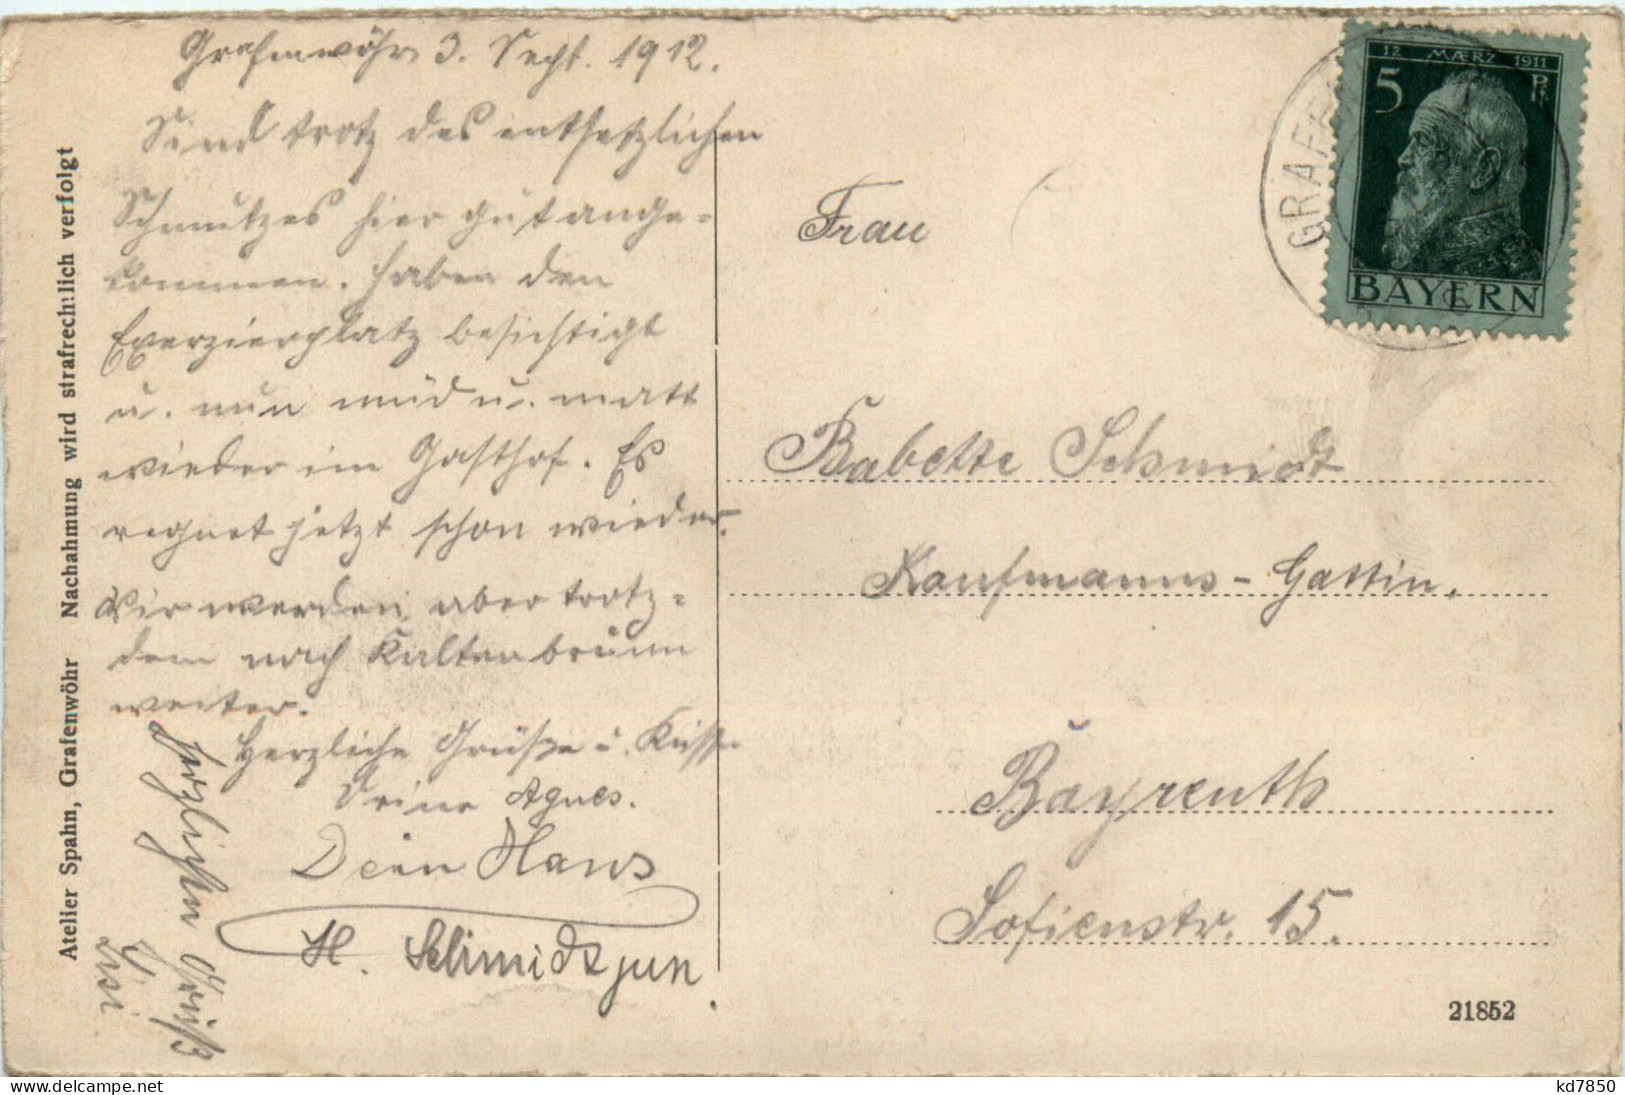 Grafenwöhr 3. Sept. 1912.
Sind trotz des entsetzlichen
Schmutzes hier gut ange-
kommen. Haben den
Exerzierplatz besichtigt
u. nun müd u. matt
wieder im Gasthof. Es
regnet jetzt schon wieder.
Wir werden aber trotz-
dem nach Kaltenbrunn
weiter.
Herzliche Grüße u. Küsse
Deine Agnes.
Dein Hans
H. Schmidt jun.
Herzlichen Gruß
Lisi
Atelier Spahn, Grafenwöhr Nachahmung wird strafrechtlich verfolgt
12 MÆRZ 1911
5 Pf.
BAYERN
GRAFE
Frau
Babette Schmidt
Kaufmanns-Gattin.
Bayreuth
Sofienstr. 15.
21852
kd7850